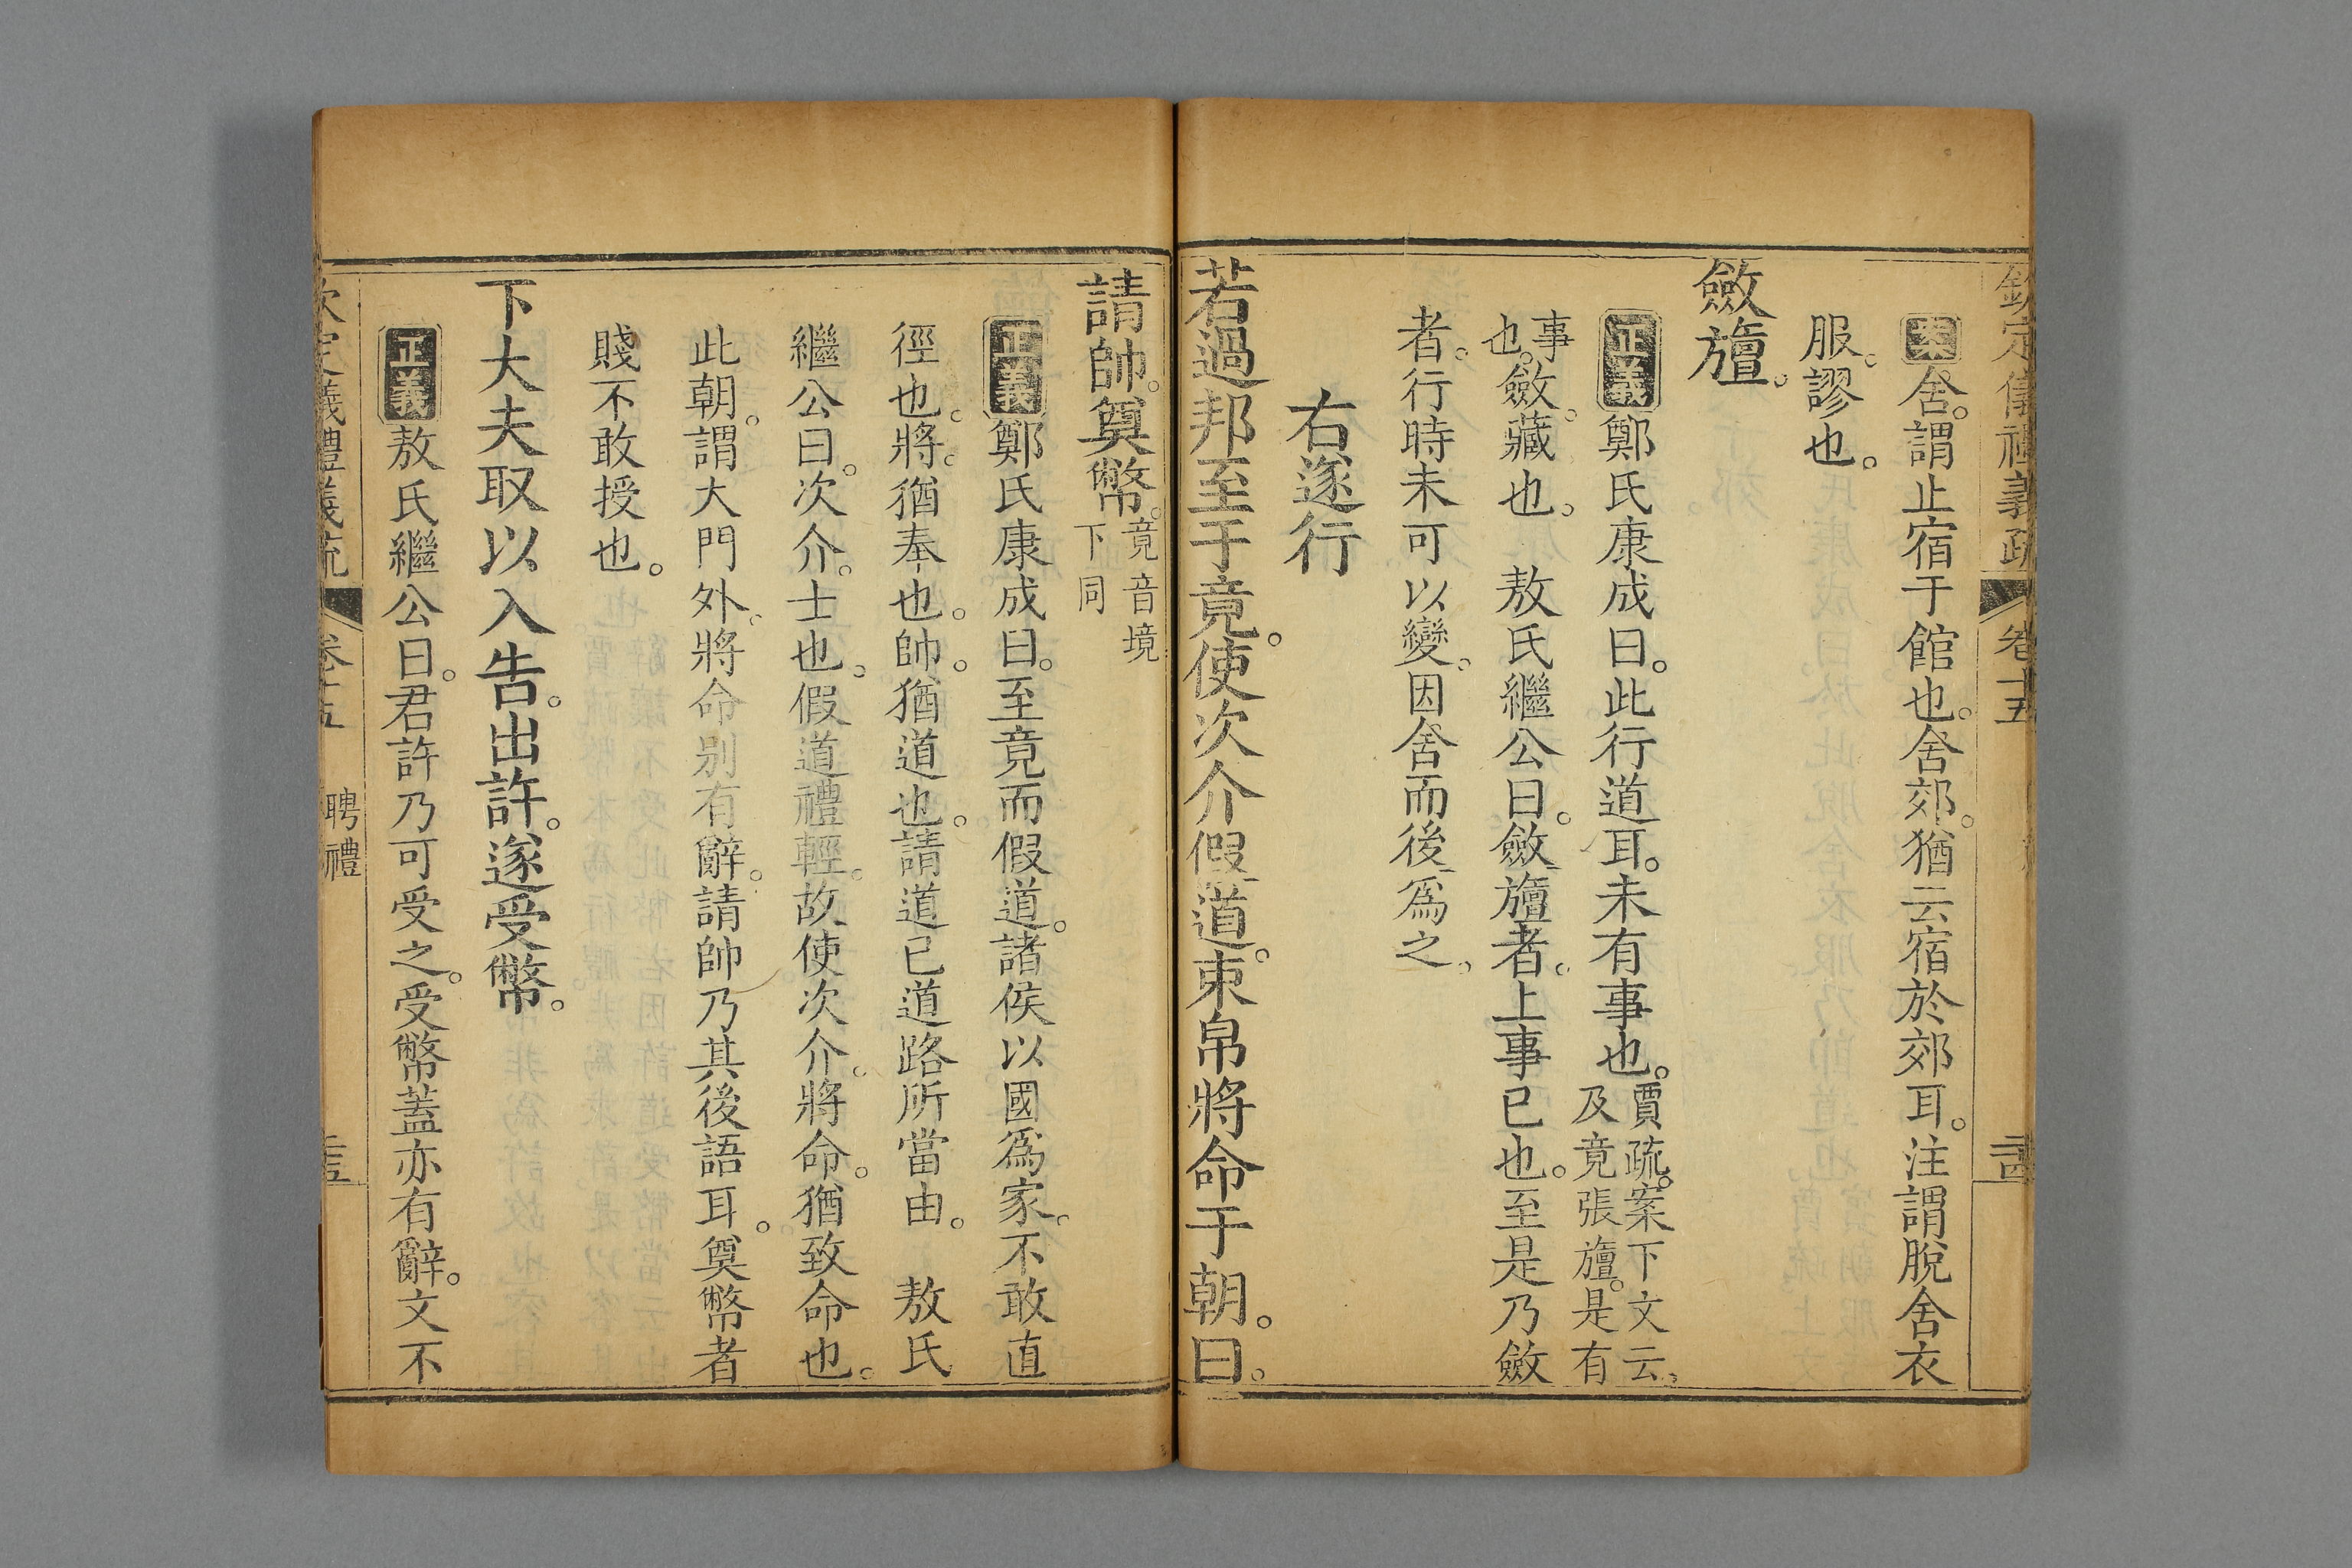 欽定儀禮義疏 卷十五 二十四
案舍。謂止宿于館也。舍郊。猶云宿於郊耳。注謂脫舍衣
服。謬也。
斂旜。
正義鄭氏康成曰。此行道耳。未有事也。賈疏。案下文云。及竟張旜。是有
事也。斂。藏也。 敖氏繼公曰。斂旜者。上事已也。至是乃斂
者。行時未可以變。因舍而後爲之。
右遂行
若過邦至于竟。使次介假道。束帛將命于朝。曰。
請帥。奠幣。竟音境下同
正義鄭氏康成曰。至竟而假道。諸侯以國爲家。不敢直
徑也。將。猶奉也。帥。猶道也。請道已道路所當由。 敖氏
繼公曰。次介。士也。假道禮輕。故使次介。將命。猶致命也。
此朝。謂大門外。將命別有辭。請帥乃其後語耳。奠幣者
賤不敢授也。
下大夫取以入告。出許。遂受幣。
正義敖氏繼公曰。君許乃可受之。受幣蓋亦有辭。文不
欽定儀禮義疏 卷十五 聘禮 二十五